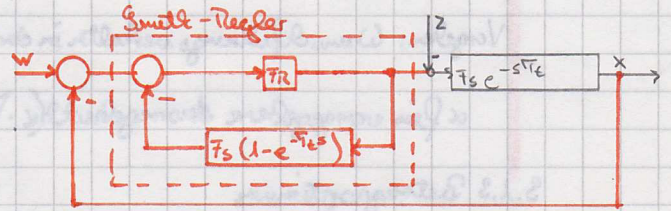 Smith-Regler
z
w
FR
-
Fs e^-sTt
x
-
-
Fs (1-e^-Tts)